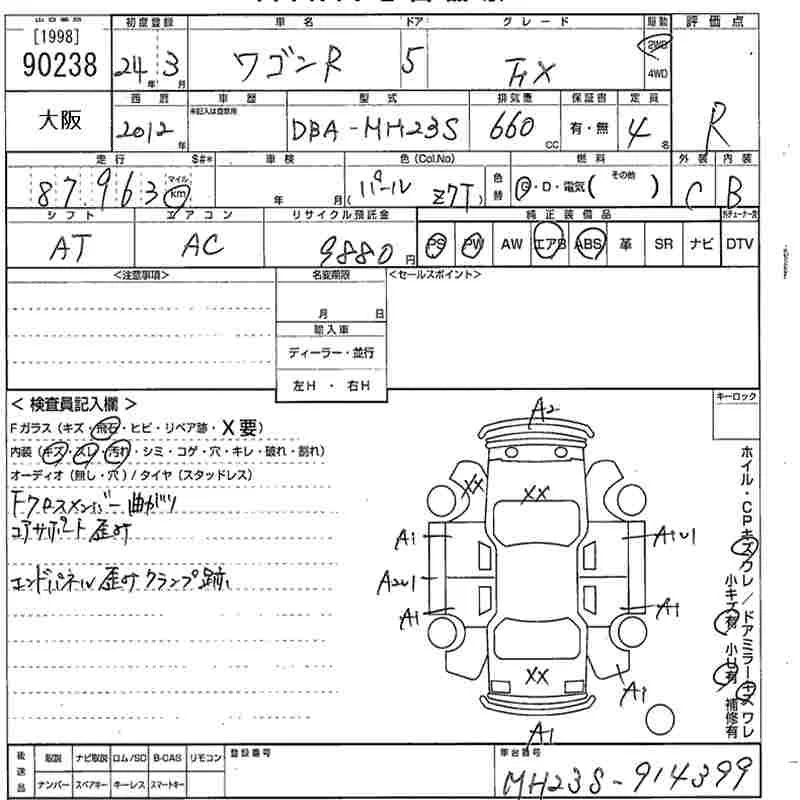 [1998]
90238
初度登録 車名 ドア グレード 駆動 評価点
24年 3月 ワゴンR 5 FX 2WD 4WD
大阪
西暦 車歴 型式 排気量 保証書 定員
未記入は自家用
2012年 DBA-MH23S 660 CC 有・無 4名 R
走行 S#* 車検 色(Col.No) 燃料 外装 内装
87,963 マイル km 年 月 (パール Z7T) 色替 G・D・電気( その他 ) C B
シフト エアコン リサイクル預託金 純正装備品
AT AC 9880円 PS PW AW エアB ABS 革 SR ナビ DTV
<注意事項> 名変期限 <セールスポイント>
月 日
輸入車
ディーラー・並行
左H ・ 右H
< 検査員記入欄 > キーロック
Fガラス(キズ・飛石・ヒビ・リペア跡・X要)
内装(キズ・スレ・汚れ・シミ・コゲ・穴・キレ・破れ・割れ)
オーディオ(無し・穴)/タイヤ(スタッドレス)
Fクロスメンバー曲がり
コアサポート歪み
エンドパネル歪みクランプ跡
A2
XX XX
A1 A1U1
A2U1
A1 A1
XX
A1
A1
ホイル・CPキズワレ/ドアミラーキズワレ
小キズ有 小U有 補修有
後送品 取説 ナビ取説 ロム/SD B-CAS リモコン 登録番号 車台番号
ナンバー スペアキー キーレス スマートキー MH23S-914399